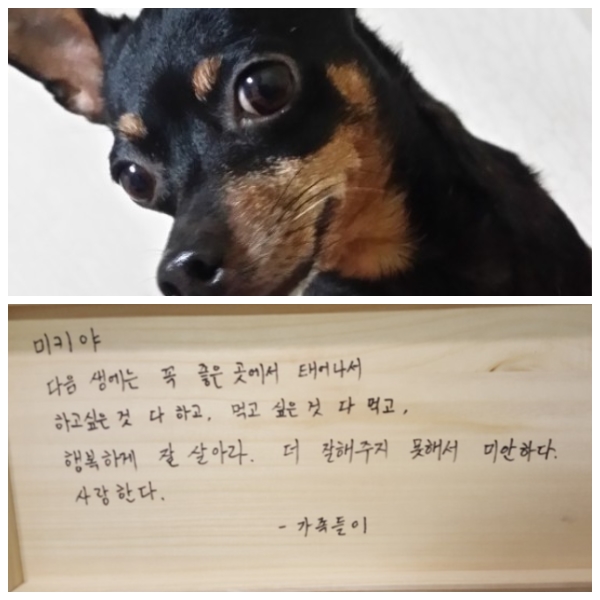 미키야
다음 생에는 꼭 좋은 곳에서 태어나서
하고싶은 것 다 하고, 먹고 싶은 것 다 먹고,
행복하게 잘 살아라. 더 잘해주지 못해서 미안하다.
사랑한다.
- 가족들이